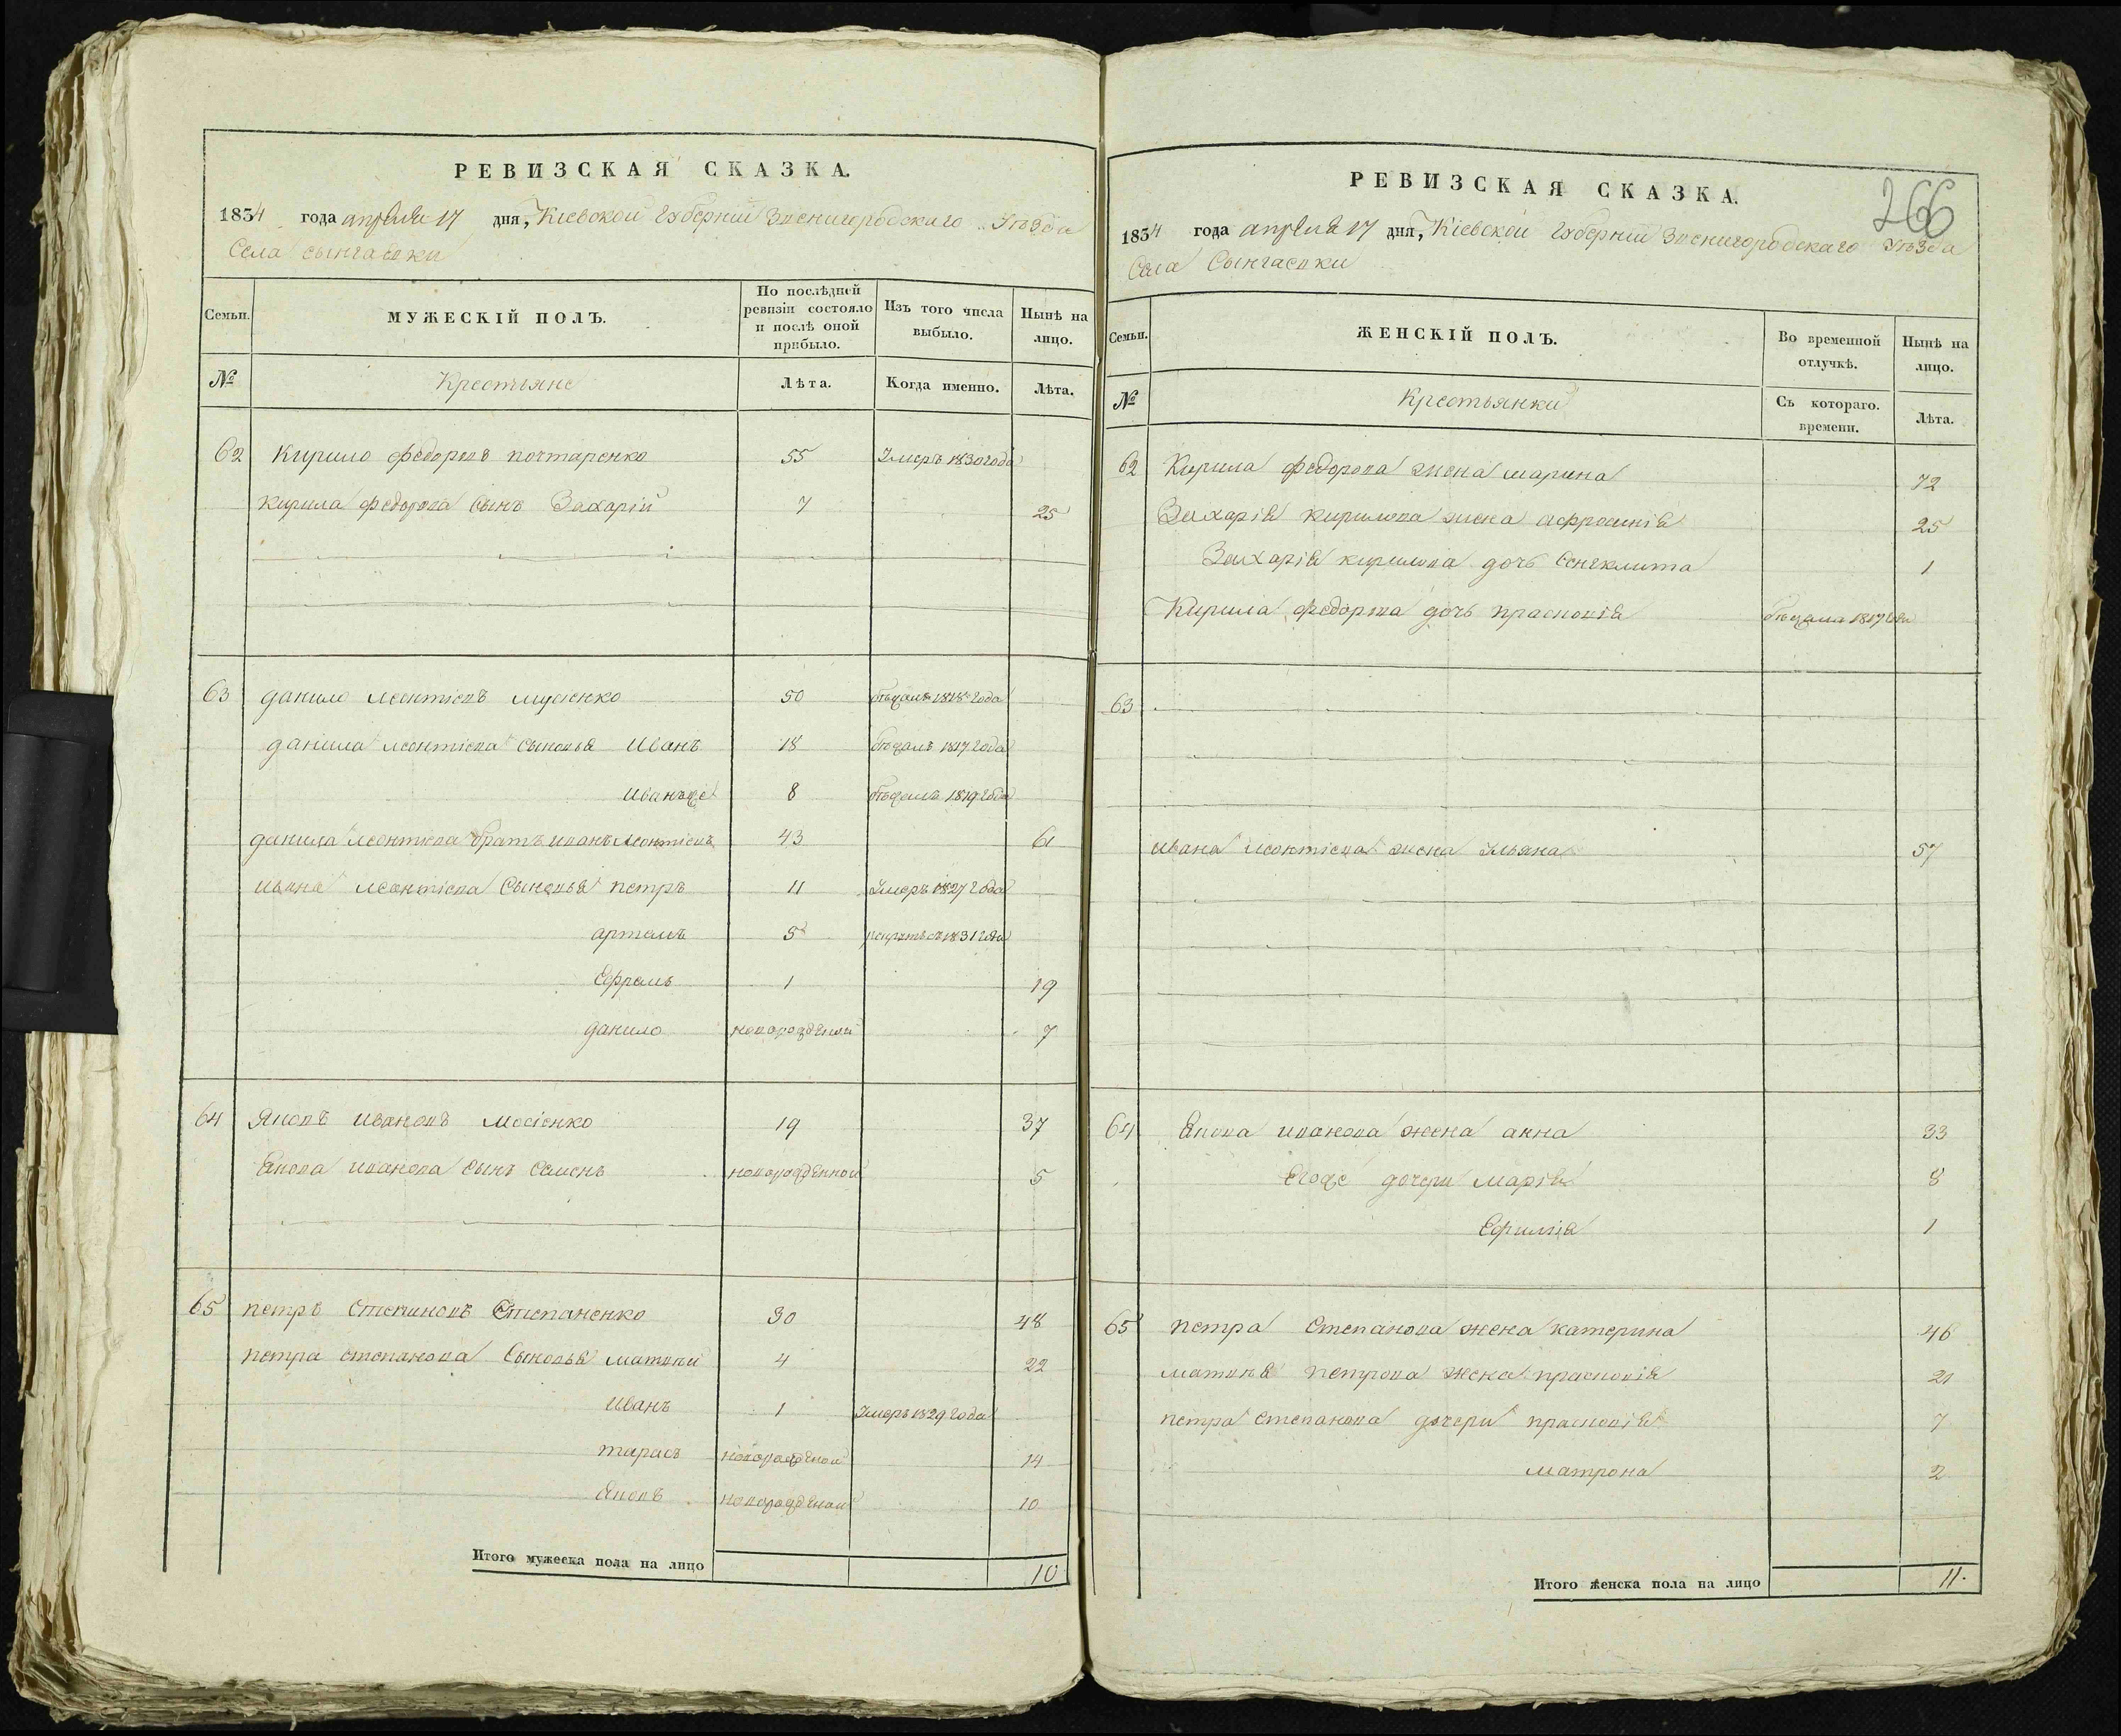 РЕВИЗСКАЯ СКАЗКА.
1834 года апреля 17 дня, Кіевской Губерніи Звенигородскаго Уезда
Села
Семьи.
МУЖЕСКІЙ ПОЛЪ.
По послѣдней ревизіи состояло и послѣ оной прибыло.
Изъ того числа выбыло.
Нынѣ на лицо.
№
Крестьяне
Лѣта.
Когда именно.
Лѣта.
62 Кирило федоровъ почтаренко 55 Умеръ 1830 года
Кирила федорова сынъ Захарій 7 25
63 данило леонтіевъ мусіенко 50 1818 года
данила леонтіева сыновья Иванъ 18 1817 года
Иванъже 8 1819 года
данила леонтіева братъ иванъ леонтіевъ 43 61
ивана леонтіева сыновья петръ 11 Умеръ 1827 года
артемъ 5 1831 года
Ефремъ 1 19
данило новорожденый 7
64 Яковъ ивановъ мосіенко 19 37
Якова иванова сынъ семенъ новорожденной 5
65 петръ степановъ Степаненко 30 48
петра степанова сыновья матвѣй 4 22
иванъ 1 Умеръ 1829 года
тарасъ новорожденой 14
Яковъ новорожденой 10
Итого мужеска пола на лицо 10
266
РЕВИЗСКАЯ СКАЗКА.
1834 года апреля 17 дня, Кіевской Губерніи Звенигородскаго Уезда
Села
Семьи.
ЖЕНСКІЙ ПОЛЪ.
Во временной отлучкѣ.
Нынѣ на лицо.
№
Крестьянки
Съ котораго времени.
Лѣта.
62 Кирила федорова жена марина 72
Захарія кирилова жена афросинія 25
Захарія кирилова дочь Сенклита 1
Кирила федорова дочь прасковія 1819 года
63
ивана леонтіева жена Ульяна 57
64 Якова иванова жена анна 33
Егоже дочери марія 8
Ефимія 1
65 петра Степанова жена катерина 46
матвея петрова жена прасковія 21
петра степанова дочери прасковія 7
матрона 2
Итого женска пола на лицо 11.